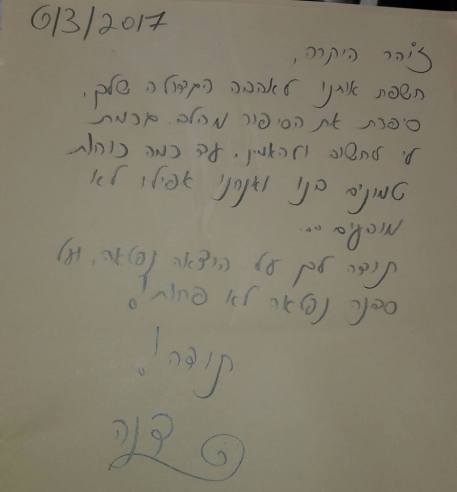 6/3/2017
זוהר היקרה,
חשפת אותנו לאהבה הגדולה שלך.
סיפרת את הסיפור מהלב. גרמת
לי לחשוב ולהאמין, עד כמה כוחות
טמונים בנו ואנחנו אפילו לא
מודעים..
תודה לך על הרצאה נפלאה, ועל
סדנה נפלאה לא פחות!
תודה!
דנה